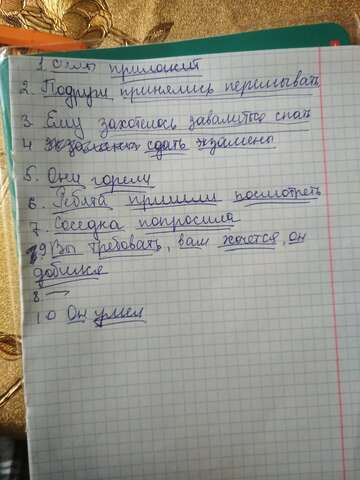 1 силы приложил
2. Подруги принялись перемывать
3 Ему захотелось завалиться спать
4 экзамены сдать экзамены
5. Они горели
6. Ребята пришли посмотреть
7. Соседка попросила
9 Вы требовать, вам хочется, он
добился
8. —
10 Он умел